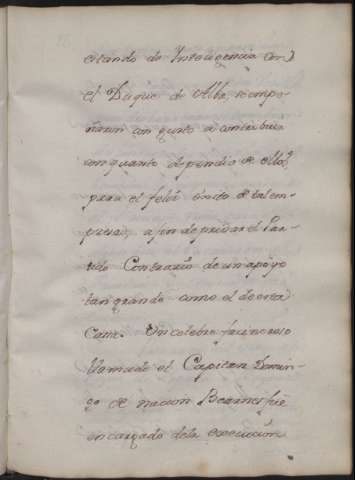 estando de Inteligencia con
el Duque de Alba, se empe-
ñaron con gusto a contribuir
en quanto dependio de ellos
para el feliz éxito de tal em-
presa, a fin de privar el Par-
tido Contrario de un apoyo
tan grande como el de esta
Casa. Un celebre facineroso
llamado el Capitan Domin-
go de nacion Bearnes fue
encargado dela execucion